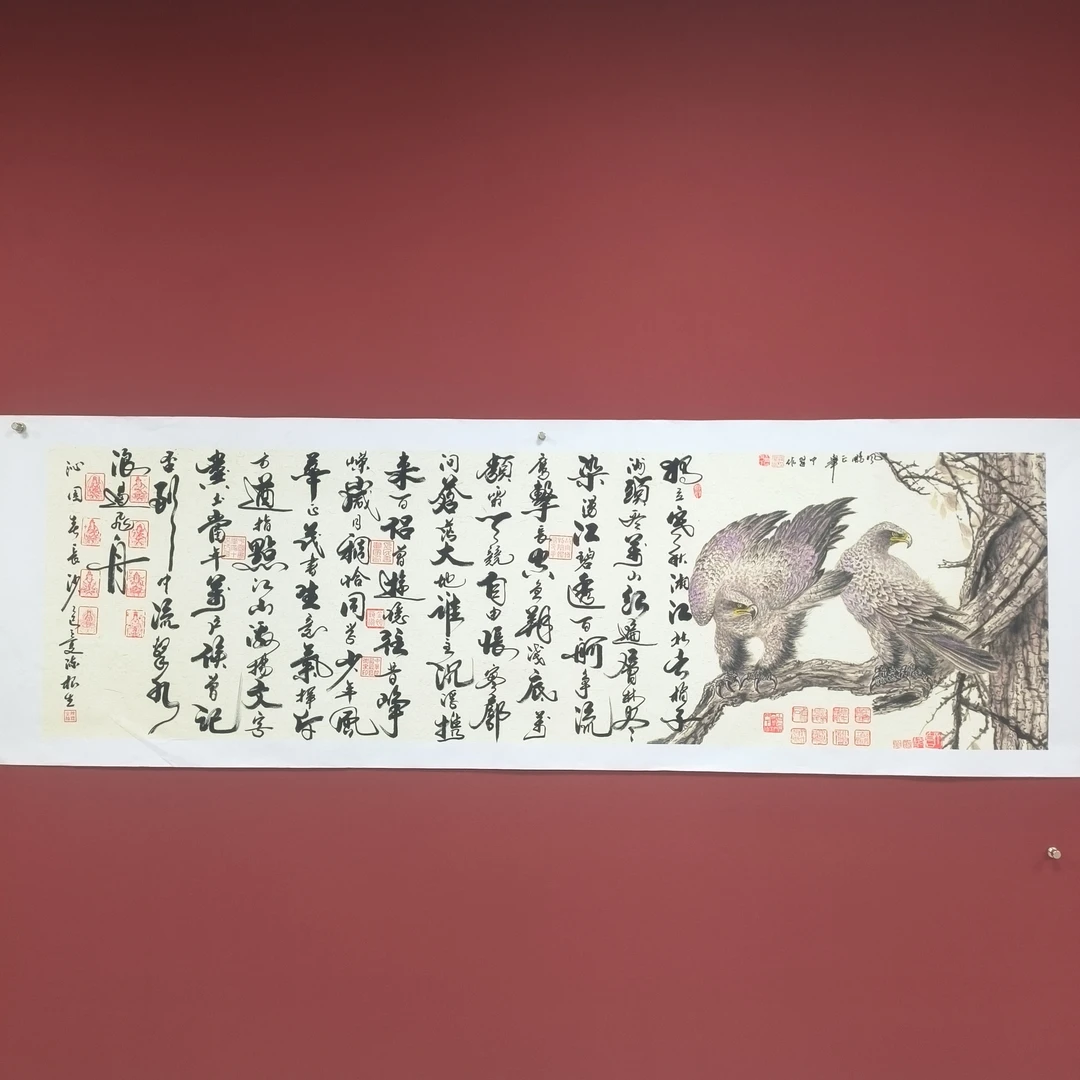 獨立寒秋湘江北去橘子
洲頭看萬山紅遍層林盡
染漫江碧透百舸爭流
鷹擊長空魚翔淺底萬
類霜天競自由悵寥廓
問蒼茫大地誰主沉浮攜
来百侣曾遊憶往昔崢
嶸歲月稠恰同學少年風
華正茂書生意氣揮斥
方遒指點江山激揚文字
糞土當年萬户侯曾記
否到中流擊水
浪遏飛舟
沁園春長沙